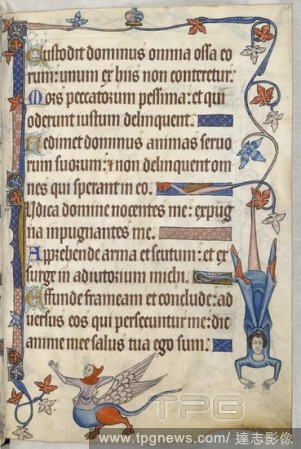 Custodit dominus omnia ossa eo
rum: unum ex hiis non conteretur.
Mors peccatorum pessima: et qui
oderunt iustum delinquent.
Redimet dominus animas servo
rum suorum: et non delinquent om
nes qui sperant in eo.
Iudica domine nocentes me: expug
na inpugnantes me.
Apprehende arma et scutum: et ex
surge in adiutorium michi.
Effunde frameam et conclude: ad
versus eos qui persecuntur me: dic
anime mee salus tua ego sum.
TPG
www.tpgnews.com/ 達志影像